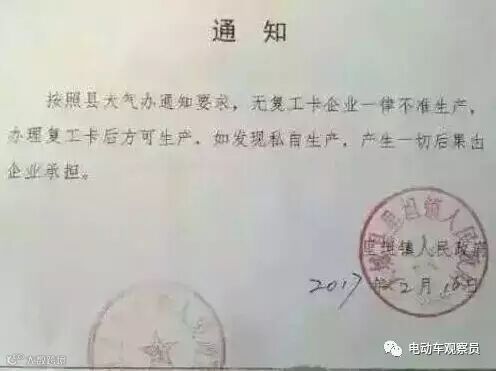 通 知
按照县大气办通知要求，无复工卡企业一律不准生产，
办理复工卡后方可生产，如发现私自生产，产生一切后果由
企业承担。
里坦镇人民政府
2017年2月18日
电动车观察员